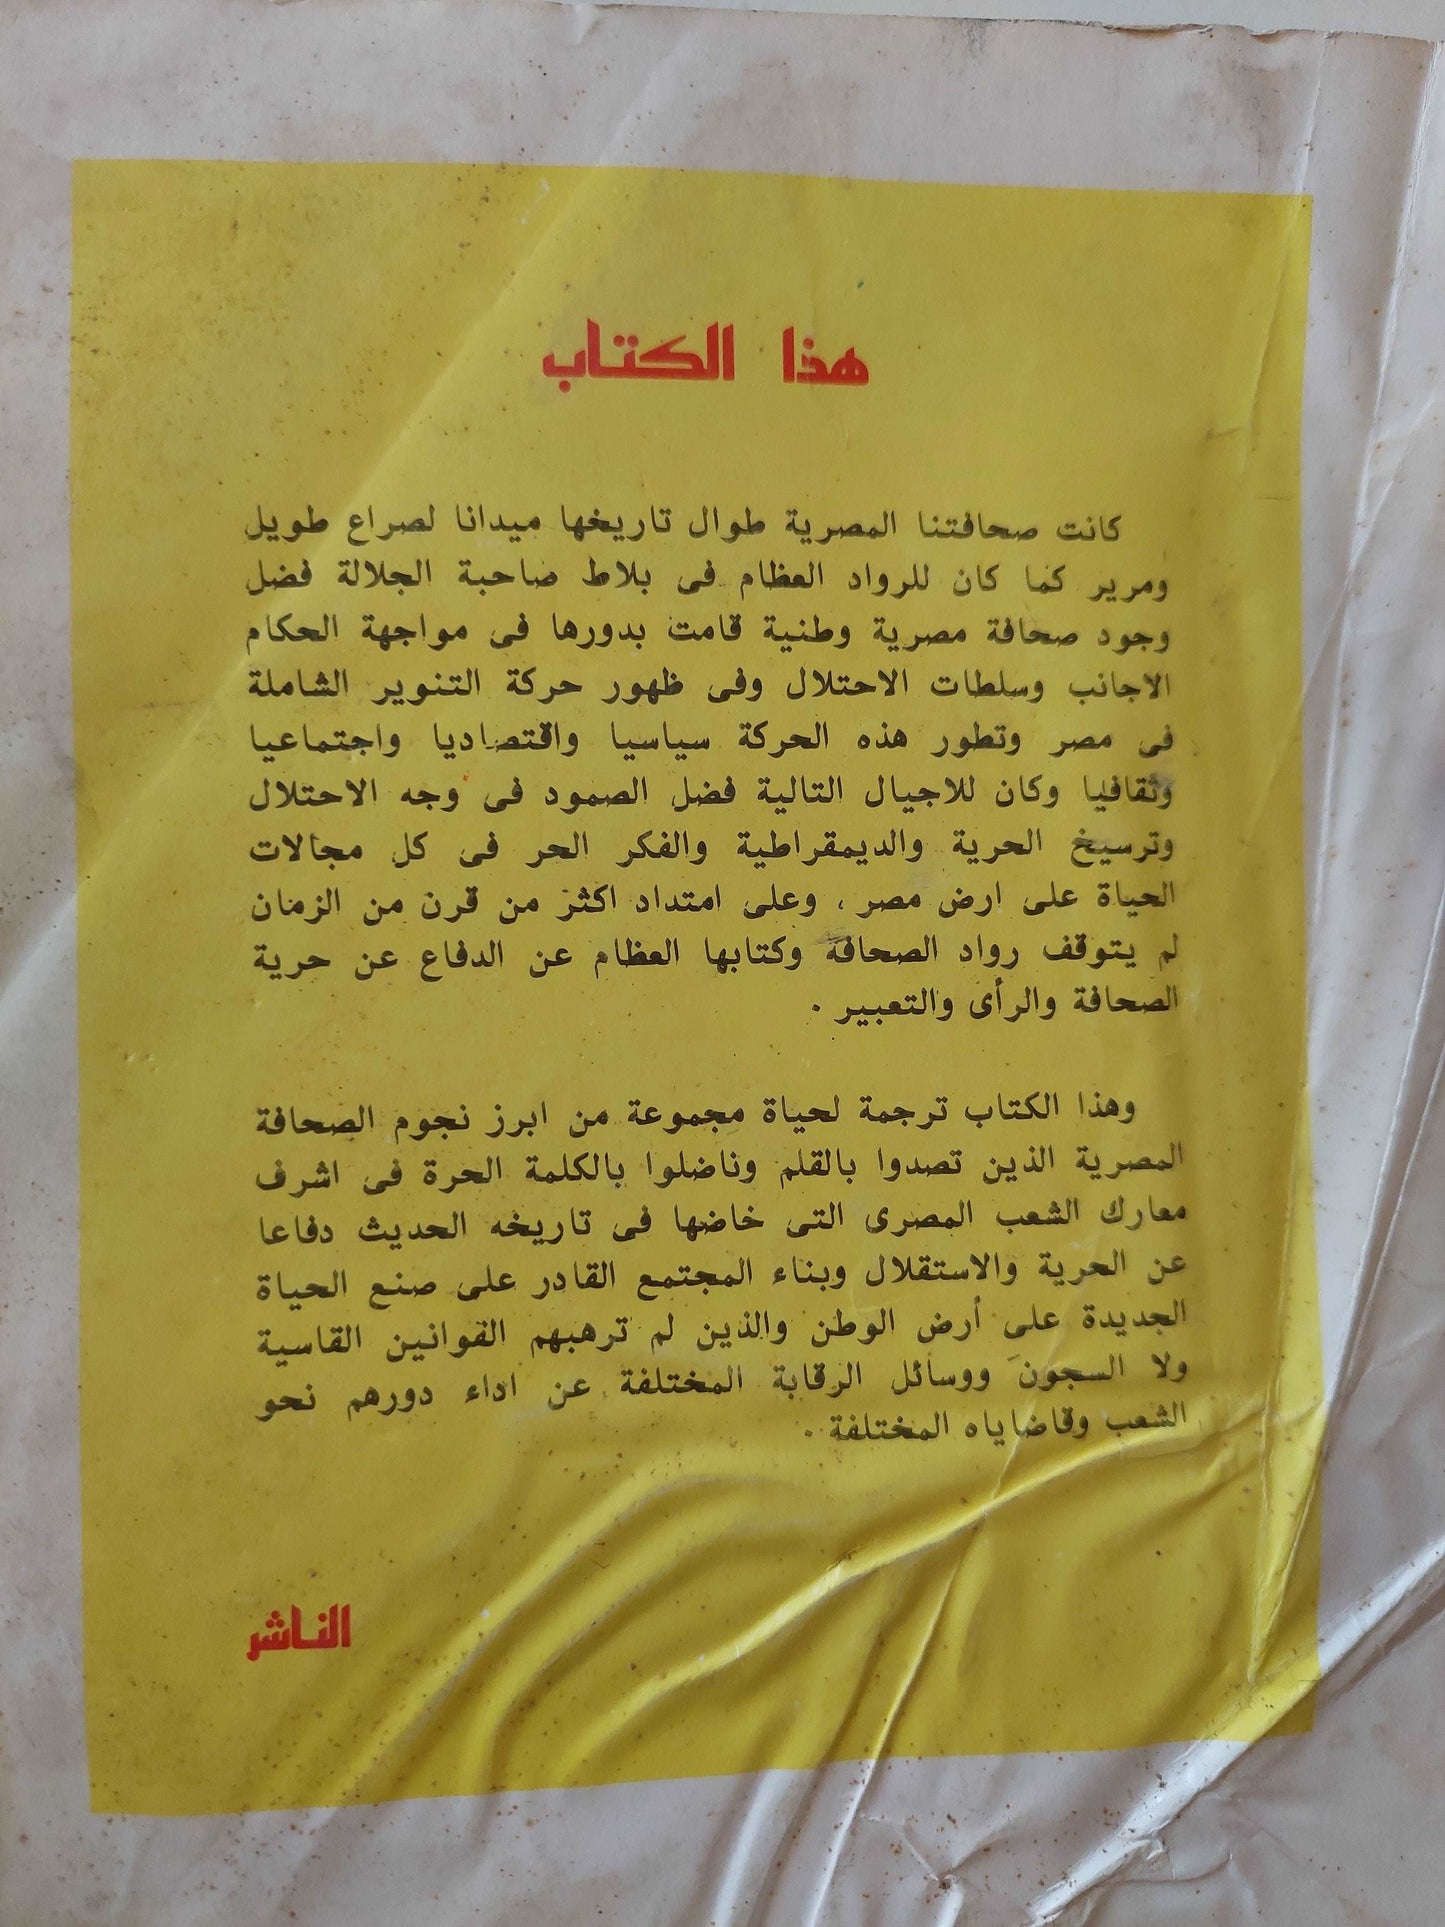 هذا الكتاب
كانت صحافتنا المصرية طوال تاريخها ميدانا لصراع طويل
ومرير كما كان للرواد العظام فى بلاط صاحبة الجلالة فضل
وجود صحافة مصرية وطنية قامت بدورها فى مواجهة الحكام
الاجانب وسلطات الاحتلال وفى ظهور حركة التنوير الشاملة
فى مصر وتطور هذه الحركة سياسيا واقتصاديا واجتماعيا
وثقافيا وكان للاجيال التالية فضل الصمود فى وجه الاحتلال
وترسيخ الحرية والديمقراطية والفكر الحر فى كل مجالات
الحياة على ارض مصر ، وعلى امتداد اكثر من قرن من الزمان
لم يتوقف رواد الصحافة وكتابها العظام عن الدفاع عن حرية
الصحافة والرأى والتعبير .
وهذا الكتاب ترجمة لحياة مجموعة من ابرز نجوم الصحافة
المصرية الذين تصدوا بالقلم وناضلوا بالكلمة الحرة فى اشرف
معارك الشعب المصرى التى خاضها فى تاريخه الحديث دفاعا
عن الحرية والاستقلال وبناء المجتمع القادر على صنع الحياة
الجديدة على أرض الوطن والذين لم ترهبهم القوانين القاسية
ولا السجون ووسائل الرقابة المختلفة عن اداء دورهم نحو
الشعب وقاضاياه المختلفة .
الناشر